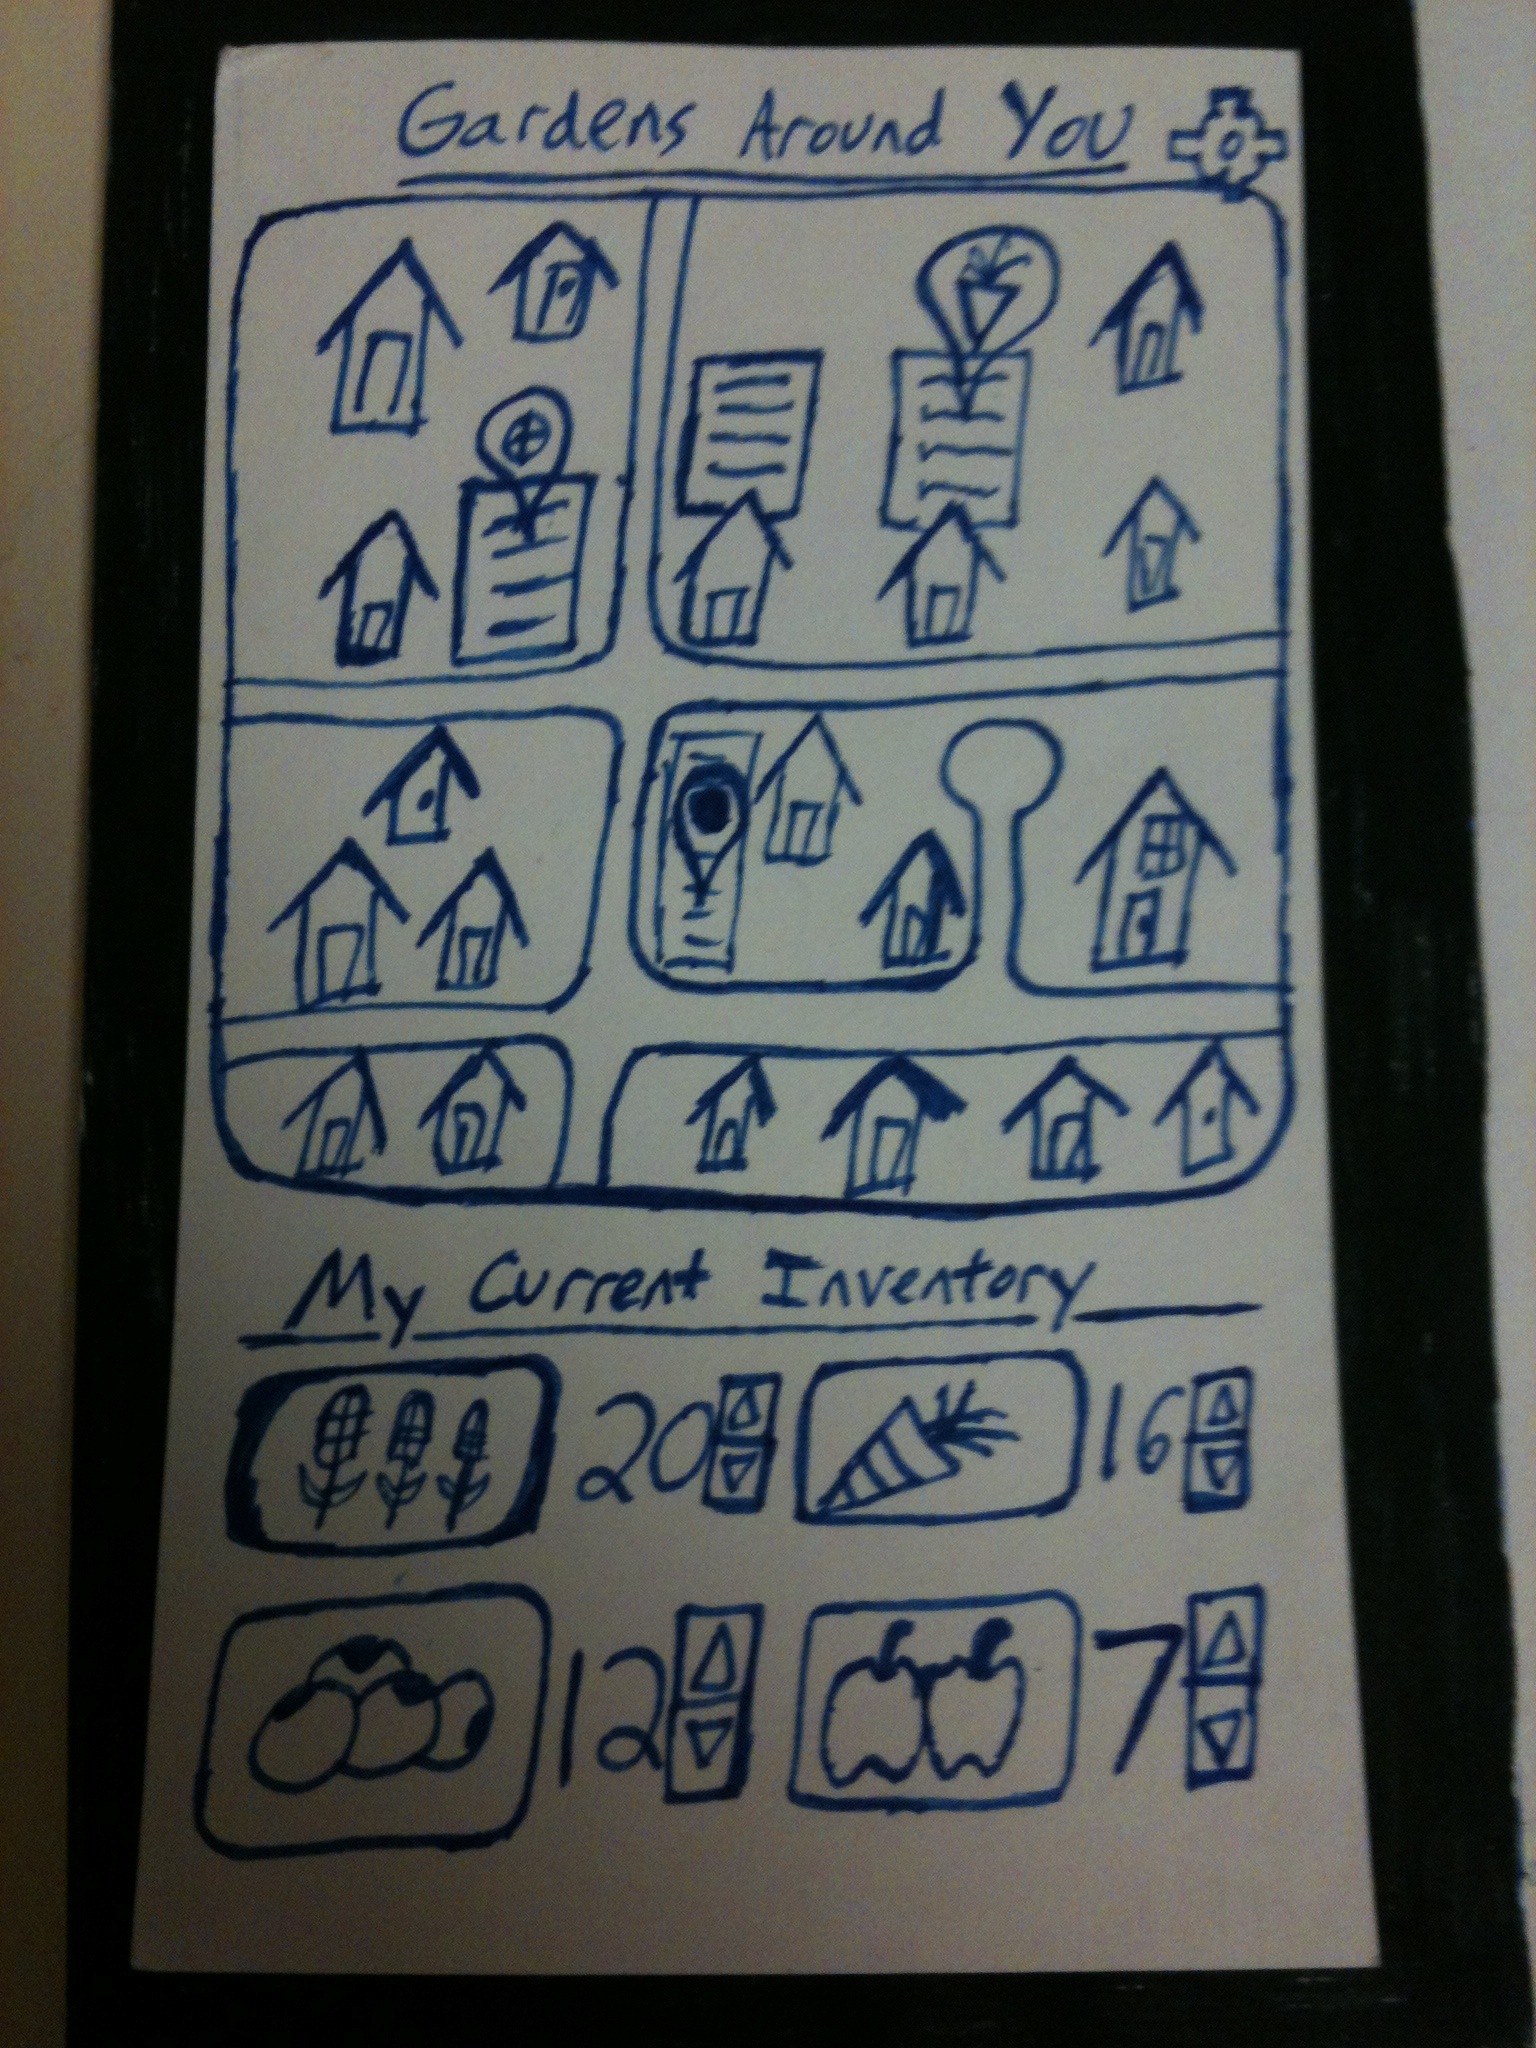 Gardens Around You
My Current Inventory
20 16
12 7